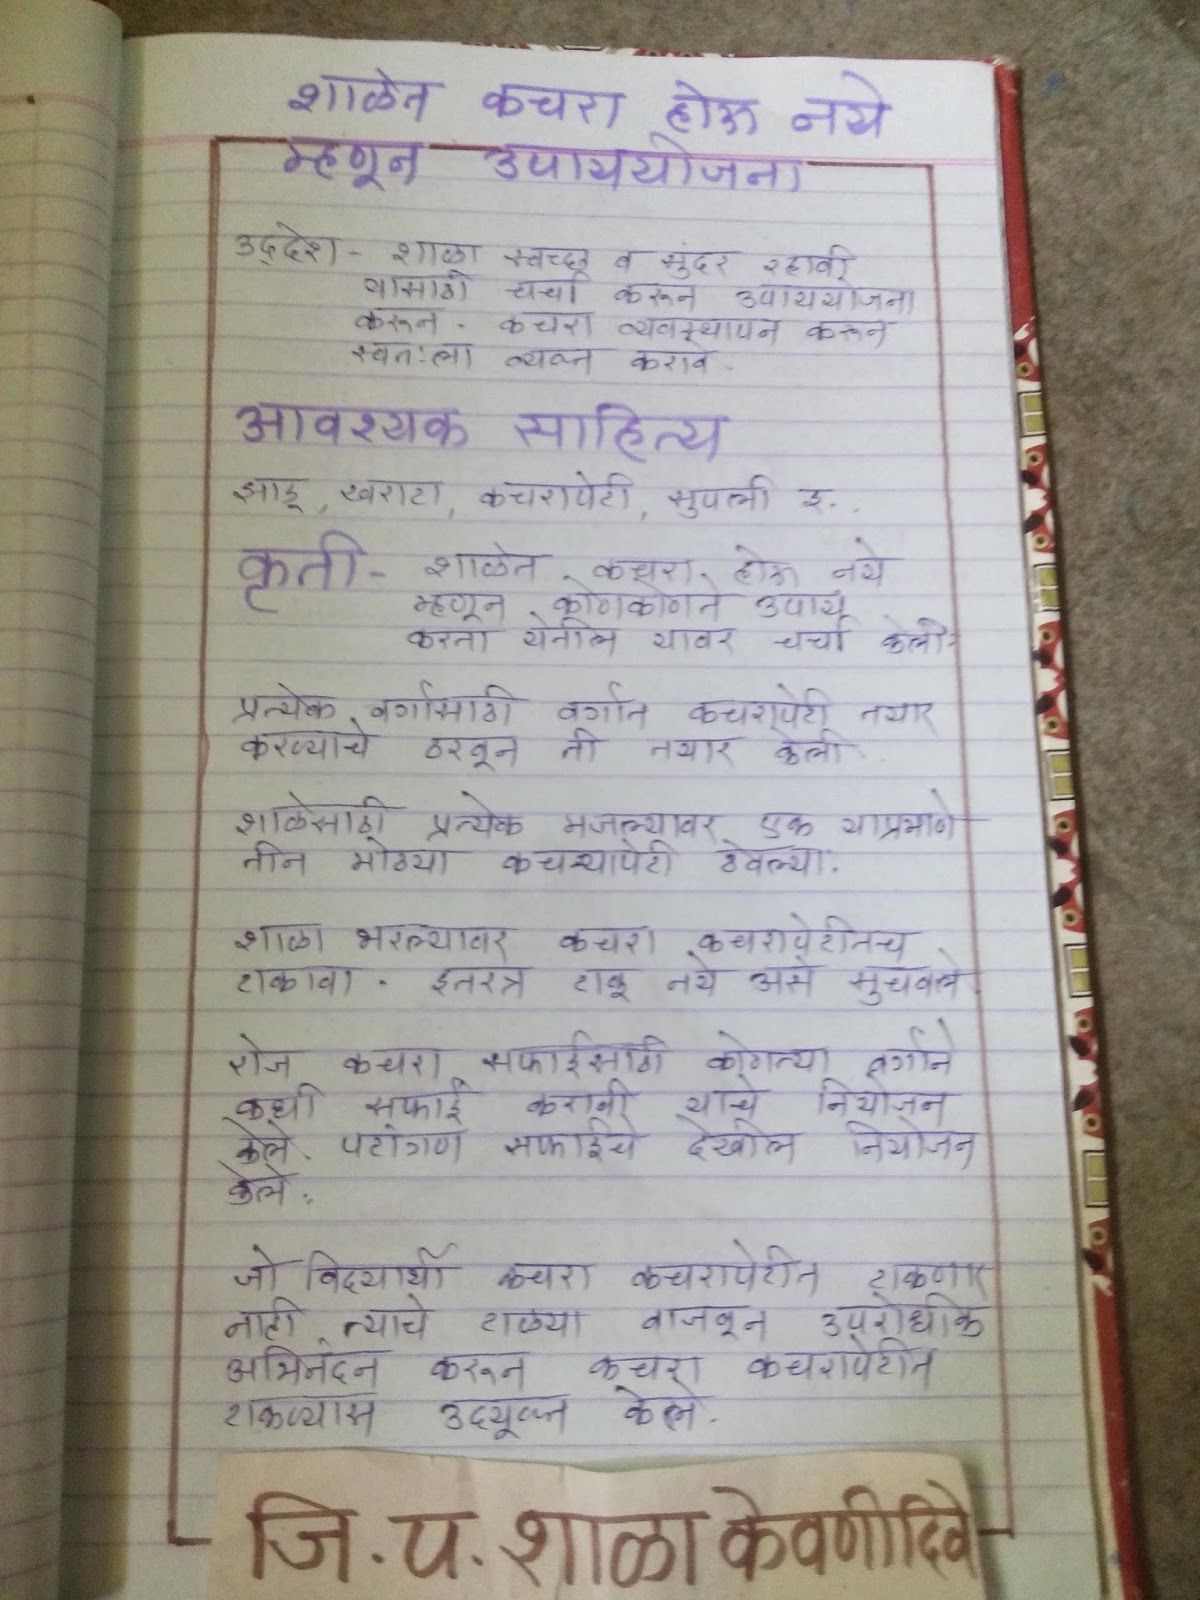 शाळेत कचरा होऊ नये
म्हणून उपाययोजना
उद्देश - शाळा स्वच्छ व सुंदर रहावी
यासाठी चर्चा करून उपाययोजना
करून. कचरा व्यवस्थापन करून
स्वतःला व्यक्त कराव.
आवश्यक साहित्य
झाडू, खराटा, कचरापेटी, सुपली इ..
कृती - शाळेत कचरा होऊ नये
म्हणून कोणकोणते उपाय
करता येतील यावर चर्चा केली.
प्रत्येक वर्गासाठी वर्गात कचरापेटी तयार
करण्याचे ठरवून ती तयार केली.
शाळेसाठी प्रत्येक मजल्यावर एक याप्रमाणे
तीन मोठया कचऱ्यापेटी ठेवल्या.
शाळा भरल्यावर कचरा कचरापेटीतच
टाकावा. इतरत्र टाकू नये असे सुचवले.
रोज कचरा सफाईसाठी कोणत्या वर्गाने
कधी सफाई करावी याचे नियोजन
केले. पटांगण सफाईचे देखील नियोजन
केले.
जो विद्यार्थी कचरा कचरापेटीत टाकणार
नाही त्याचे टाळया वाजवून उपरोधीक
अभिनंदन करून कचरा कचरापेटीत
टाकण्यास उदयूक्त केले.
जि.प.शाळा केवणीदिवे